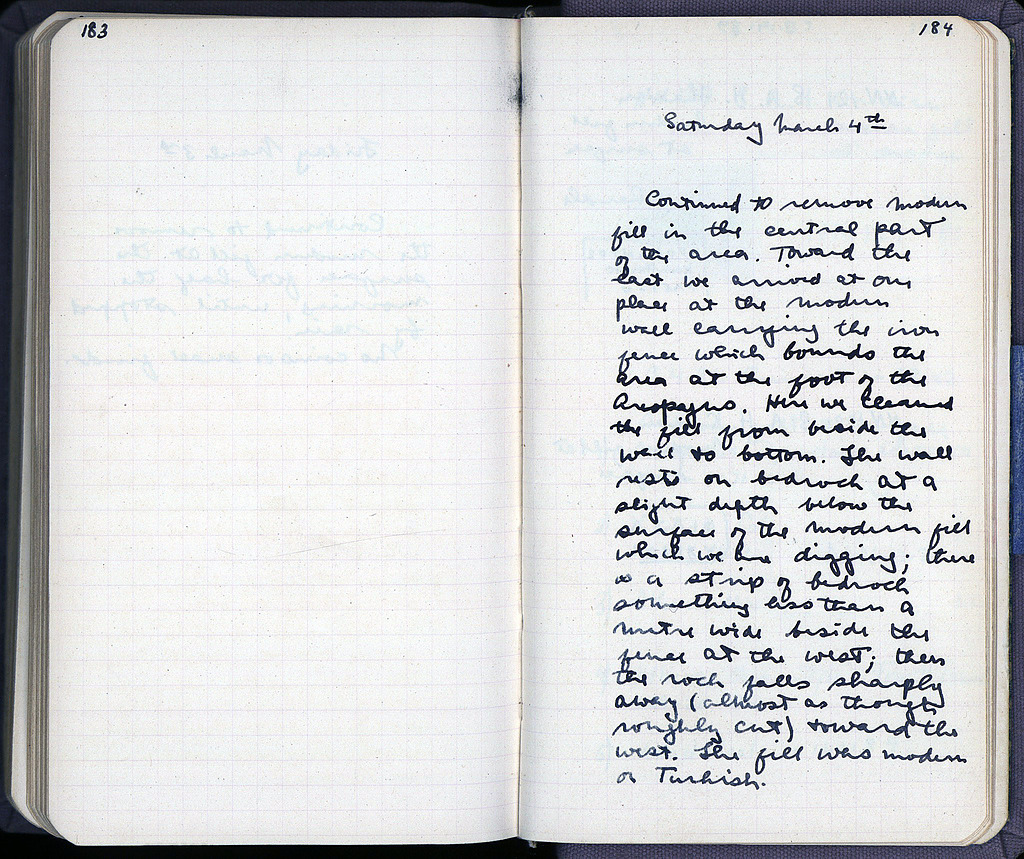 183
184
Saturday March 4th
Continued to remove modern
fill in the central part
of the area. Toward the
east we arrived at one
place at the modern
wall carrying the iron
fence which bounds the
area at the foot of the
Areopagus. Here we cleaned
the fill from beside the
wall to bottom. The wall
rests on bedrock at a
slight depth below the
surface of the modern fill
which we are digging; there
is a strip of bedrock
something less than a
metre wide beside the
fence at the west; then
the rock falls sharply
away (almost as though
roughly cut) toward the
west. The fill was modern
or Turkish.